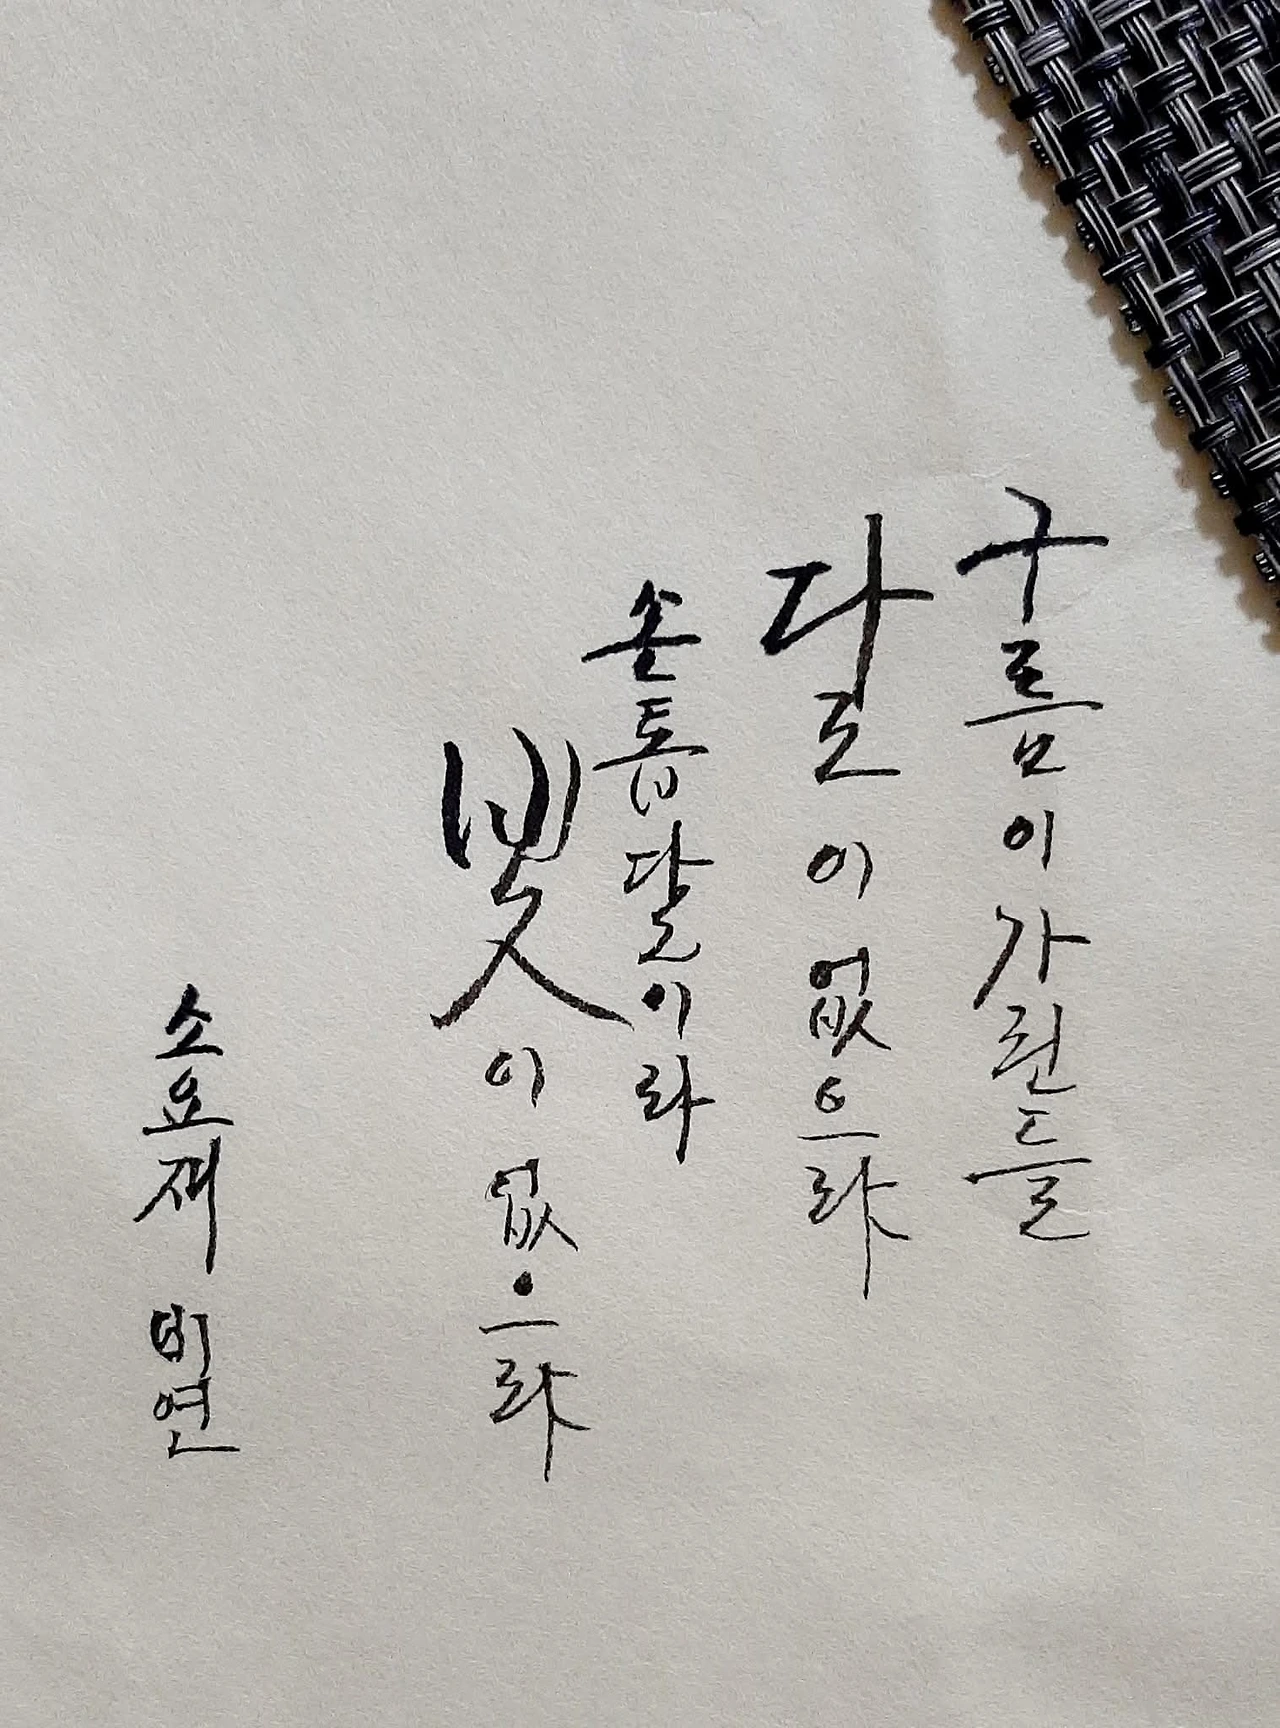 구름이 가린들
달이 없으랴
손톱달이라
빛이 없으랴
소요재 비연